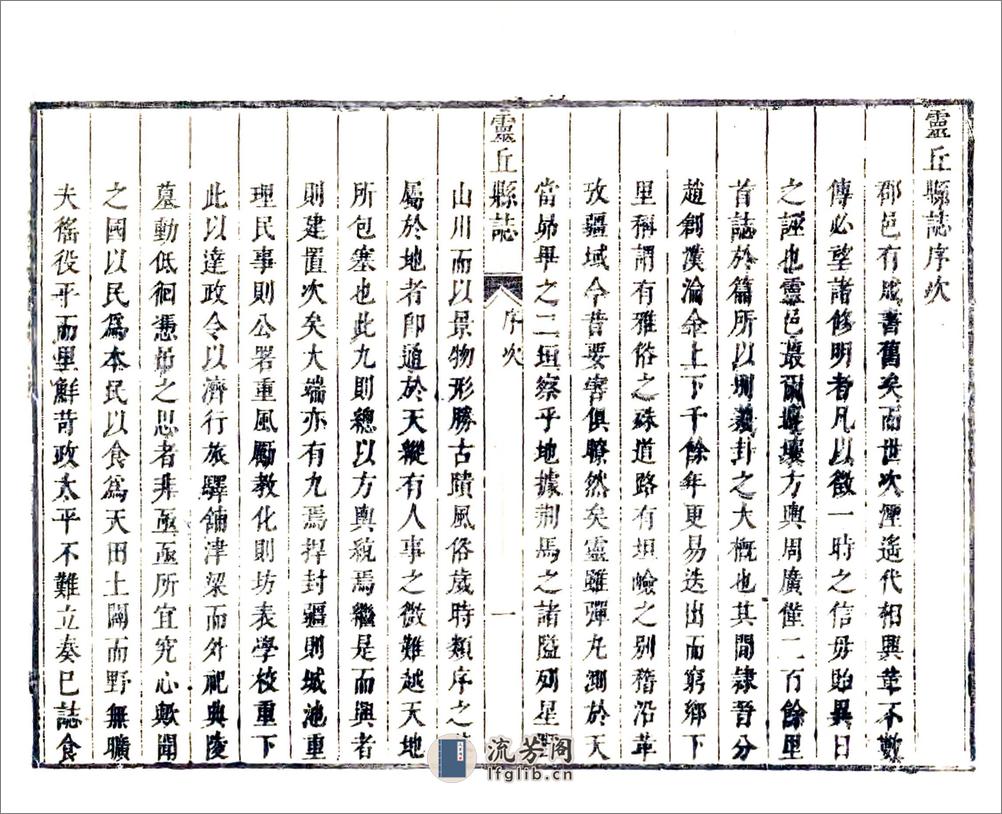 靈丘縣誌序次
郡邑有成書舊矣而世次煙遙代相興革不數
傳必望諸修明者凡以徵一時之信毋貽異日
之誣也靈邑蕞爾壤方輿周廣僅二百餘里
首誌於篇所以卦之大概也其間隸晉分
趙創漢淪金上下千餘年更易迭出而窮鄉下
里稱謂有雅俗之殊道路有坦嶮之別稽沿革
攷疆域今昔要害俱瞭然矣靈雖彈丸測於天
當昴畢之二垣察乎地據荆馬之諸隘列星
靈丘縣誌
序次
一
山川而以景物形勝古蹟風俗歲時類序之
屬於地者卽通於天縱有人事之微難越天地
所包塞也此九則總以方輿統焉繼是而興者
則建置次矣大端亦有九焉捍封疆則城池重
理民事則公署重風勵教化則坊表學校重下
此以達政令以濟行旅驛舖津梁而外祀典陵
墓動低徊憑弔之思者非亟亟所宜究心歟聞
之國以民爲本民以食爲天田土闢而野無曠
夫徭役平而里鮮苛政太平不難立奏已誌食
流芳阁
lfglib.cn